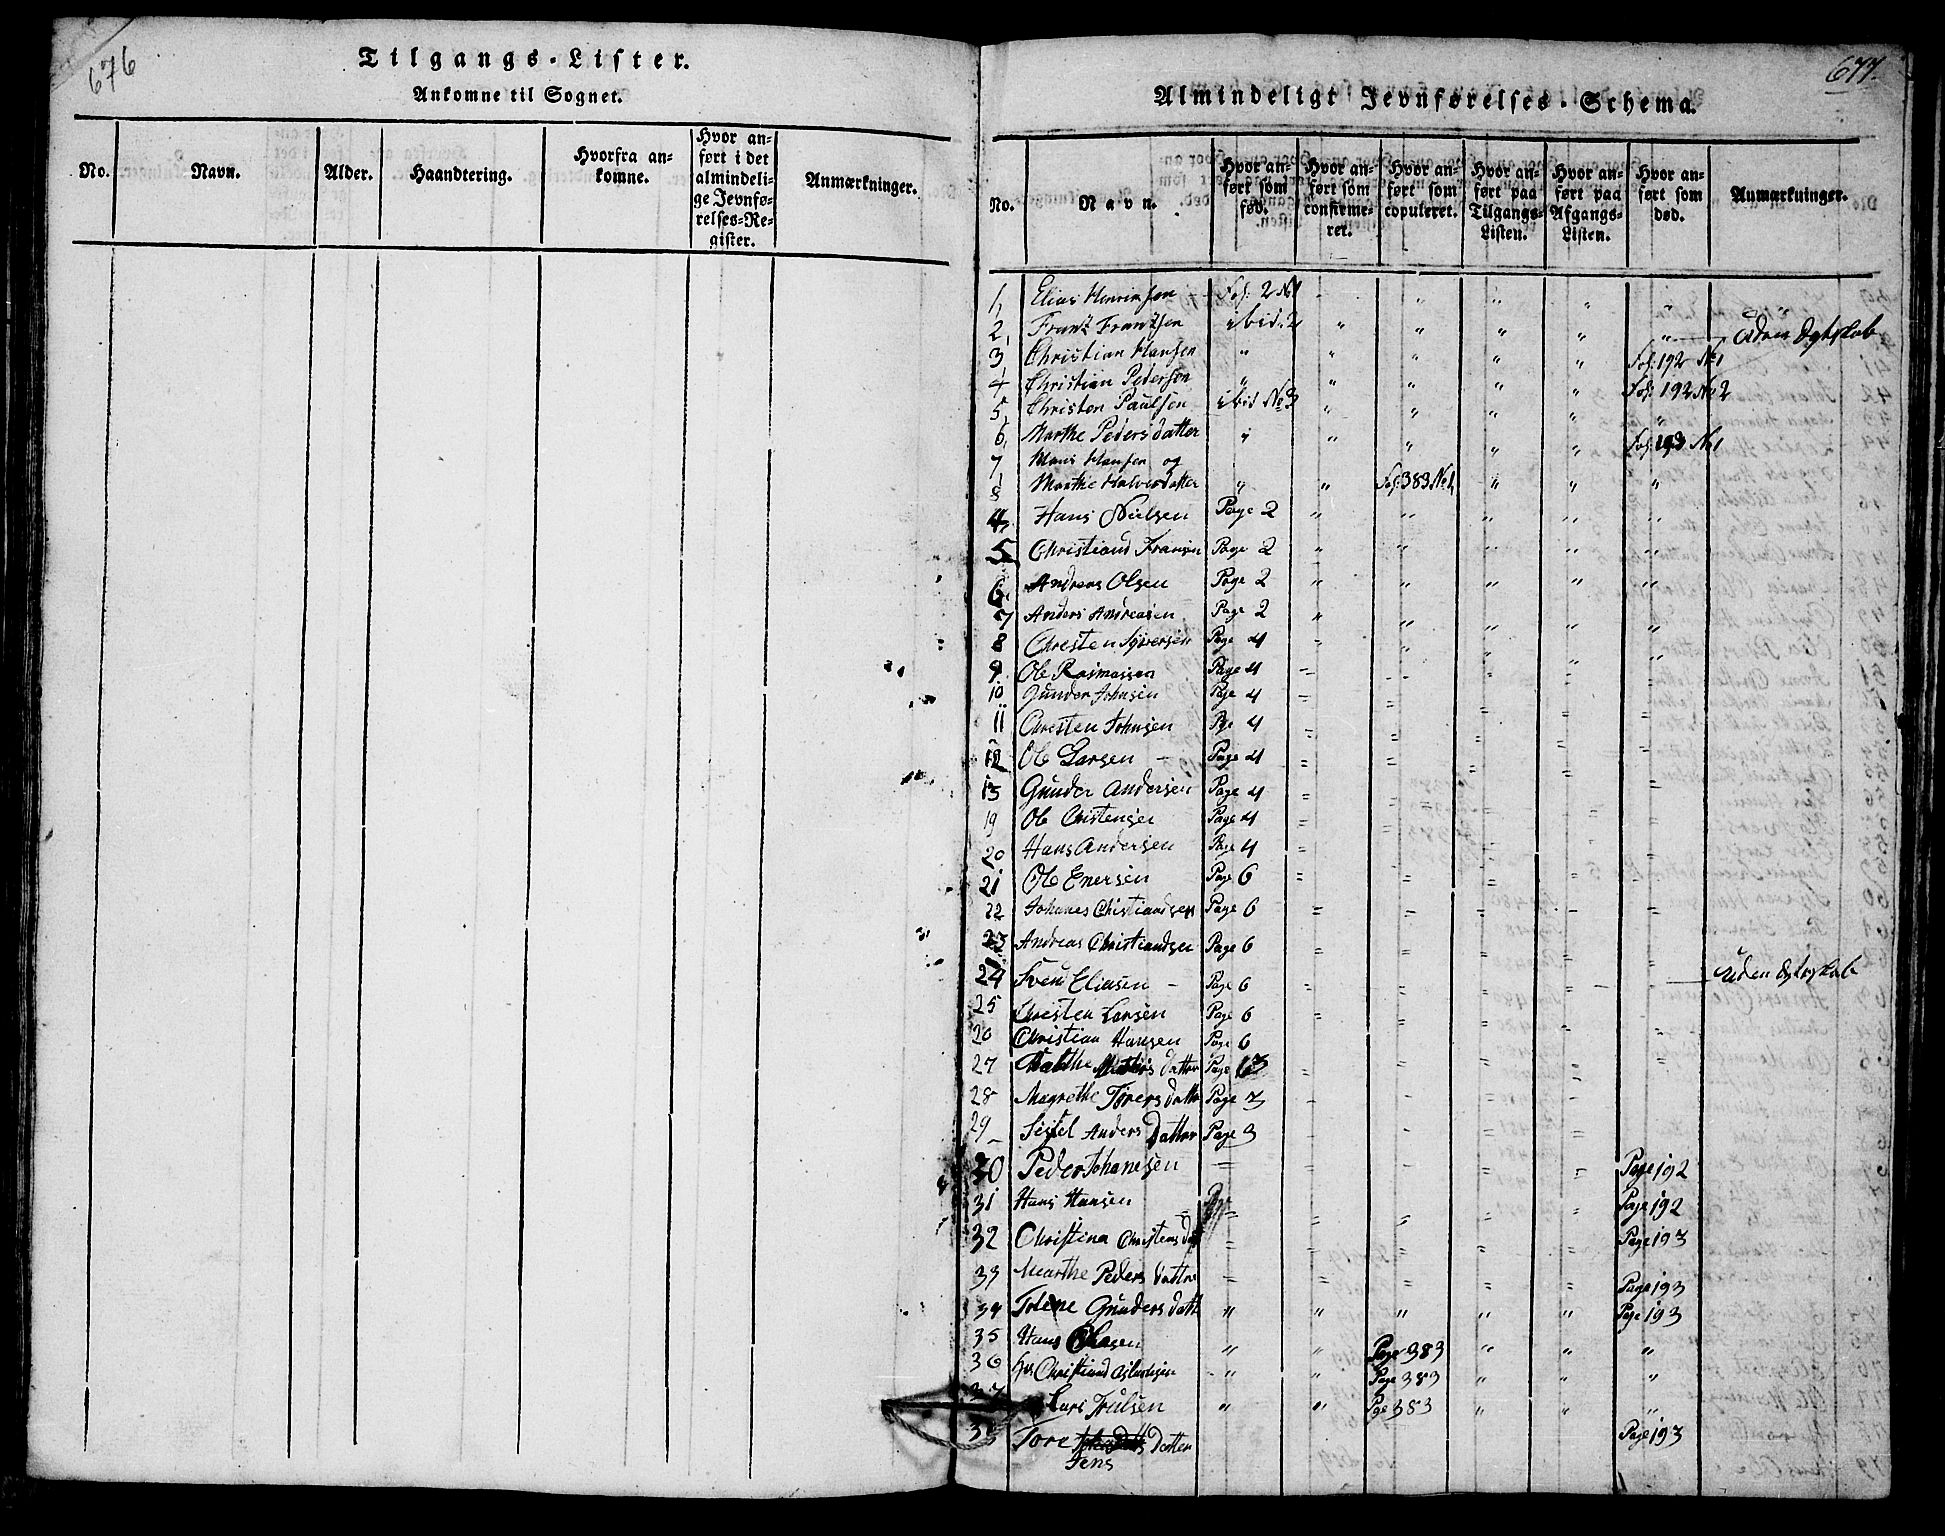 676
Tilgangs-Lister.
Ankomne til Sognet.
No. Navn. Alder. Haandtering. Hvorfra an-komne. Hvor an-ført i det almindeli-ge Jevnfø-relses-Re-gister. Anmærkninger.
677.
Almindeligt Jevnførelses-Schema.
No. Navn. Hvor an-ført som fød. Hvor an-ført som confirme-ret. Hvor an-ført som copuleret. Hvor an-ført paa Tilgangs-Listen. Hvor an-ført paa Afgangs-Listen. Hvor an-ført som død. Anmærkninger.
1, Elias Henriksen Fol: 2 No1 " " " " "
2, Frantz Frantzsen ibid. 2 " " " " "
3, Christian Hansen " " " " " Fol: 192 No1
4, Christian Pedersen " " " " " Fol: 192 No2
5, Christen Paulsen ibid No3 " " " " "
6, Marthe Pedersdatter " " " " " Fol: 193 No1
7, Hans Hansen og
8 Marthe Halvorsdatter " " Fol: 383 No1, " " "
4, Hans Nielsen Page 2 " " " " "
5 Christiand Fransen Page 2 " " " " "
6. Andreas Olsen Page 2 " " " " "
7 Anders Andreasen Page 2 " " " " "
8 Chresten Syversen Page 4 " " " " "
9 Ole Rasmassen Page 4 = " " " "
10 Gunder Johnsen Page 4 = = = = =
11 Chresten Johnsen Page 4 = = = = =
12 Ole Larsen - Page 4 = = = = =
13 Gunder Andersen Page 4 = = = = =
19 Ole Christensen Page 4 = = = = =
20 Hans Andersen Page 4 = = = = =
21 Ole Enersen Page 6 = = = = =
22 Johanes Christiandsen Page 6 = = = = =
23 Andreas Christiandsen Page 6 = = = = =
24 Svend Eliasen - Page 6 = = = - - Uden
25 Chresten Larsen Page 6 = = = = =
26 Christian Hansen Page 6 = = = = =
27 Marthe datter Page
28 Magrethe Torers datter Page 3 - - = =
29 Sissel Anders Datter Page 3 - - = =
30 Peder Johanesen = = = = = Page 192
31 Hans Hansen = = = = = Page 192
32 Christina Christens datt = = = = = Page 193
33 Marthe Peders datter = = = = = Page 193
34 Tolene Gunders datt " " " " " Page 193
35 Hans Olasen " " Page 383 " " "
36 Christiand Aslachsen " " Page 383 " " "
37 Lars Trulsen " " Page 383 " " "
38 Tore datter Page 193
Jens